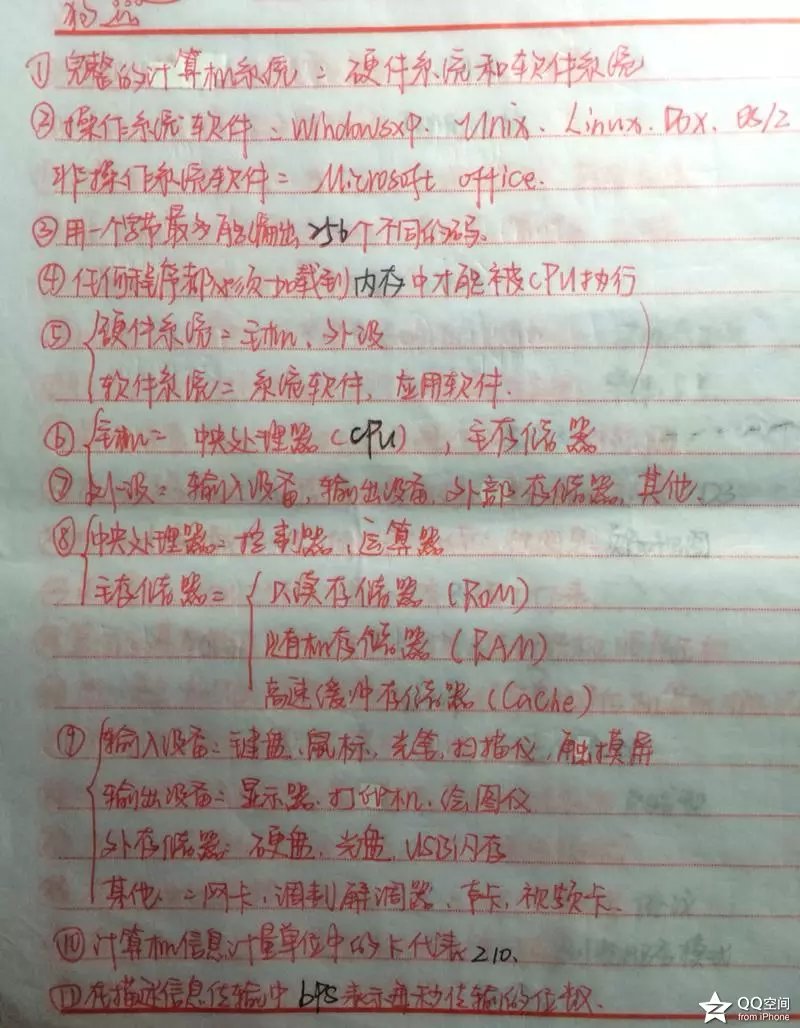 ①完整的计算机系统=硬件系统和软件系统
②操作系统软件=Windowsxp、Unix、Linux、Dox、OS/2
非操作系统软件=Microsoft office.
③用一个字节最多能编出256个不同的码。
④任何程序都必须加载到内存中才能被CPU执行
⑤硬件系统=主机、外设
软件系统=系统软件、应用软件.
⑥主机=中央处理器(CPU),主存储器
⑦外设=输入设备,输出设备,外部存储器,其他
⑧中央处理器=控制器、运算器
主存储器= 只读存储器(ROM)
随机存储器(RAM)
高速缓冲存储器(Cache)
⑨输入设备=键盘、鼠标、光笔、扫描仪、触摸屏
输出设备=显示器、打印机、绘图仪
外存储器=硬盘、光盘、USB闪存
其他=网卡、调制解调器、声卡、视频卡.
⑩计算机信息计量单位中的K代表210、
⑪在描述信息传输中bps表示每秒传输的位数.
QQ空间
from iPhone